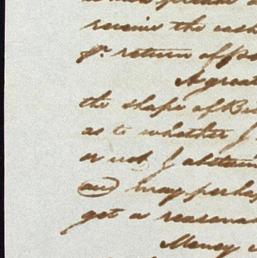 receive the cash
pr. return of pos
A great
the shape of Bu
as to whether I
or not I obtain
any may perhap
get a reasona
Money i